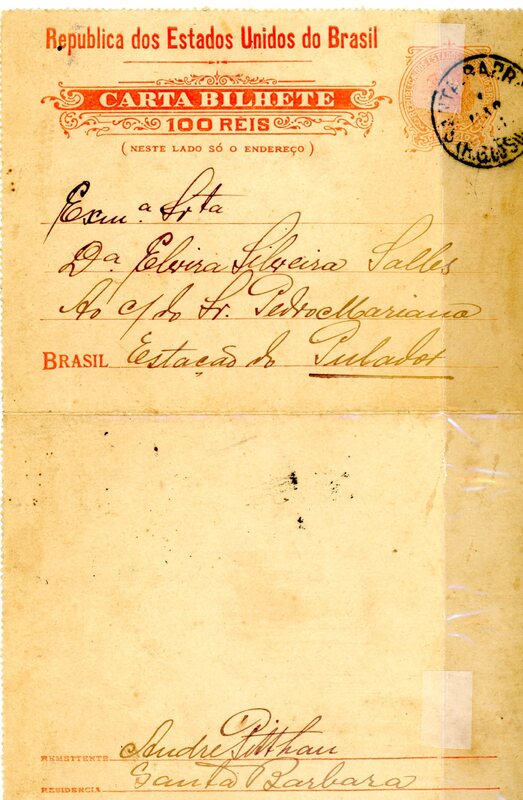 Republica dos Estados Unidos do Brasil
CARTA BILHETE
100 RÉIS
( NESTE LADO SÓ O ENDEREÇO )
Exm.ª Srta
Dª Elvira Silveira Salles
Ao c/ do Sr. Pedro Mariano
BRASIL Estação do Pulador
REMETTENTE André Pitthan
RESIDENCIA Santa Barbara